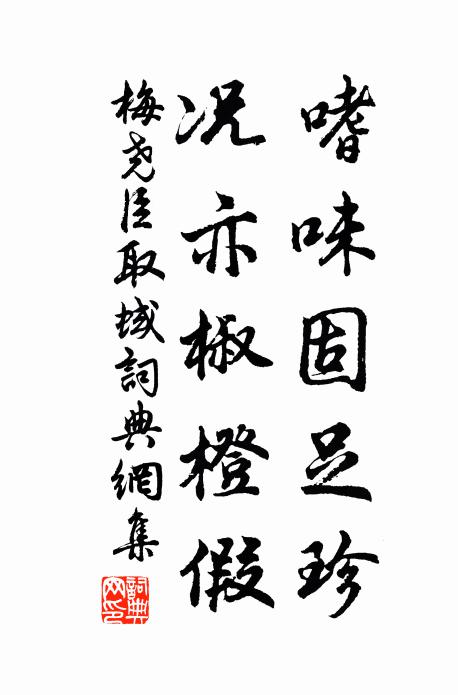 嗜味固足珍
况亦椒橙假
梅尧臣取域詞典網集
詞典網印